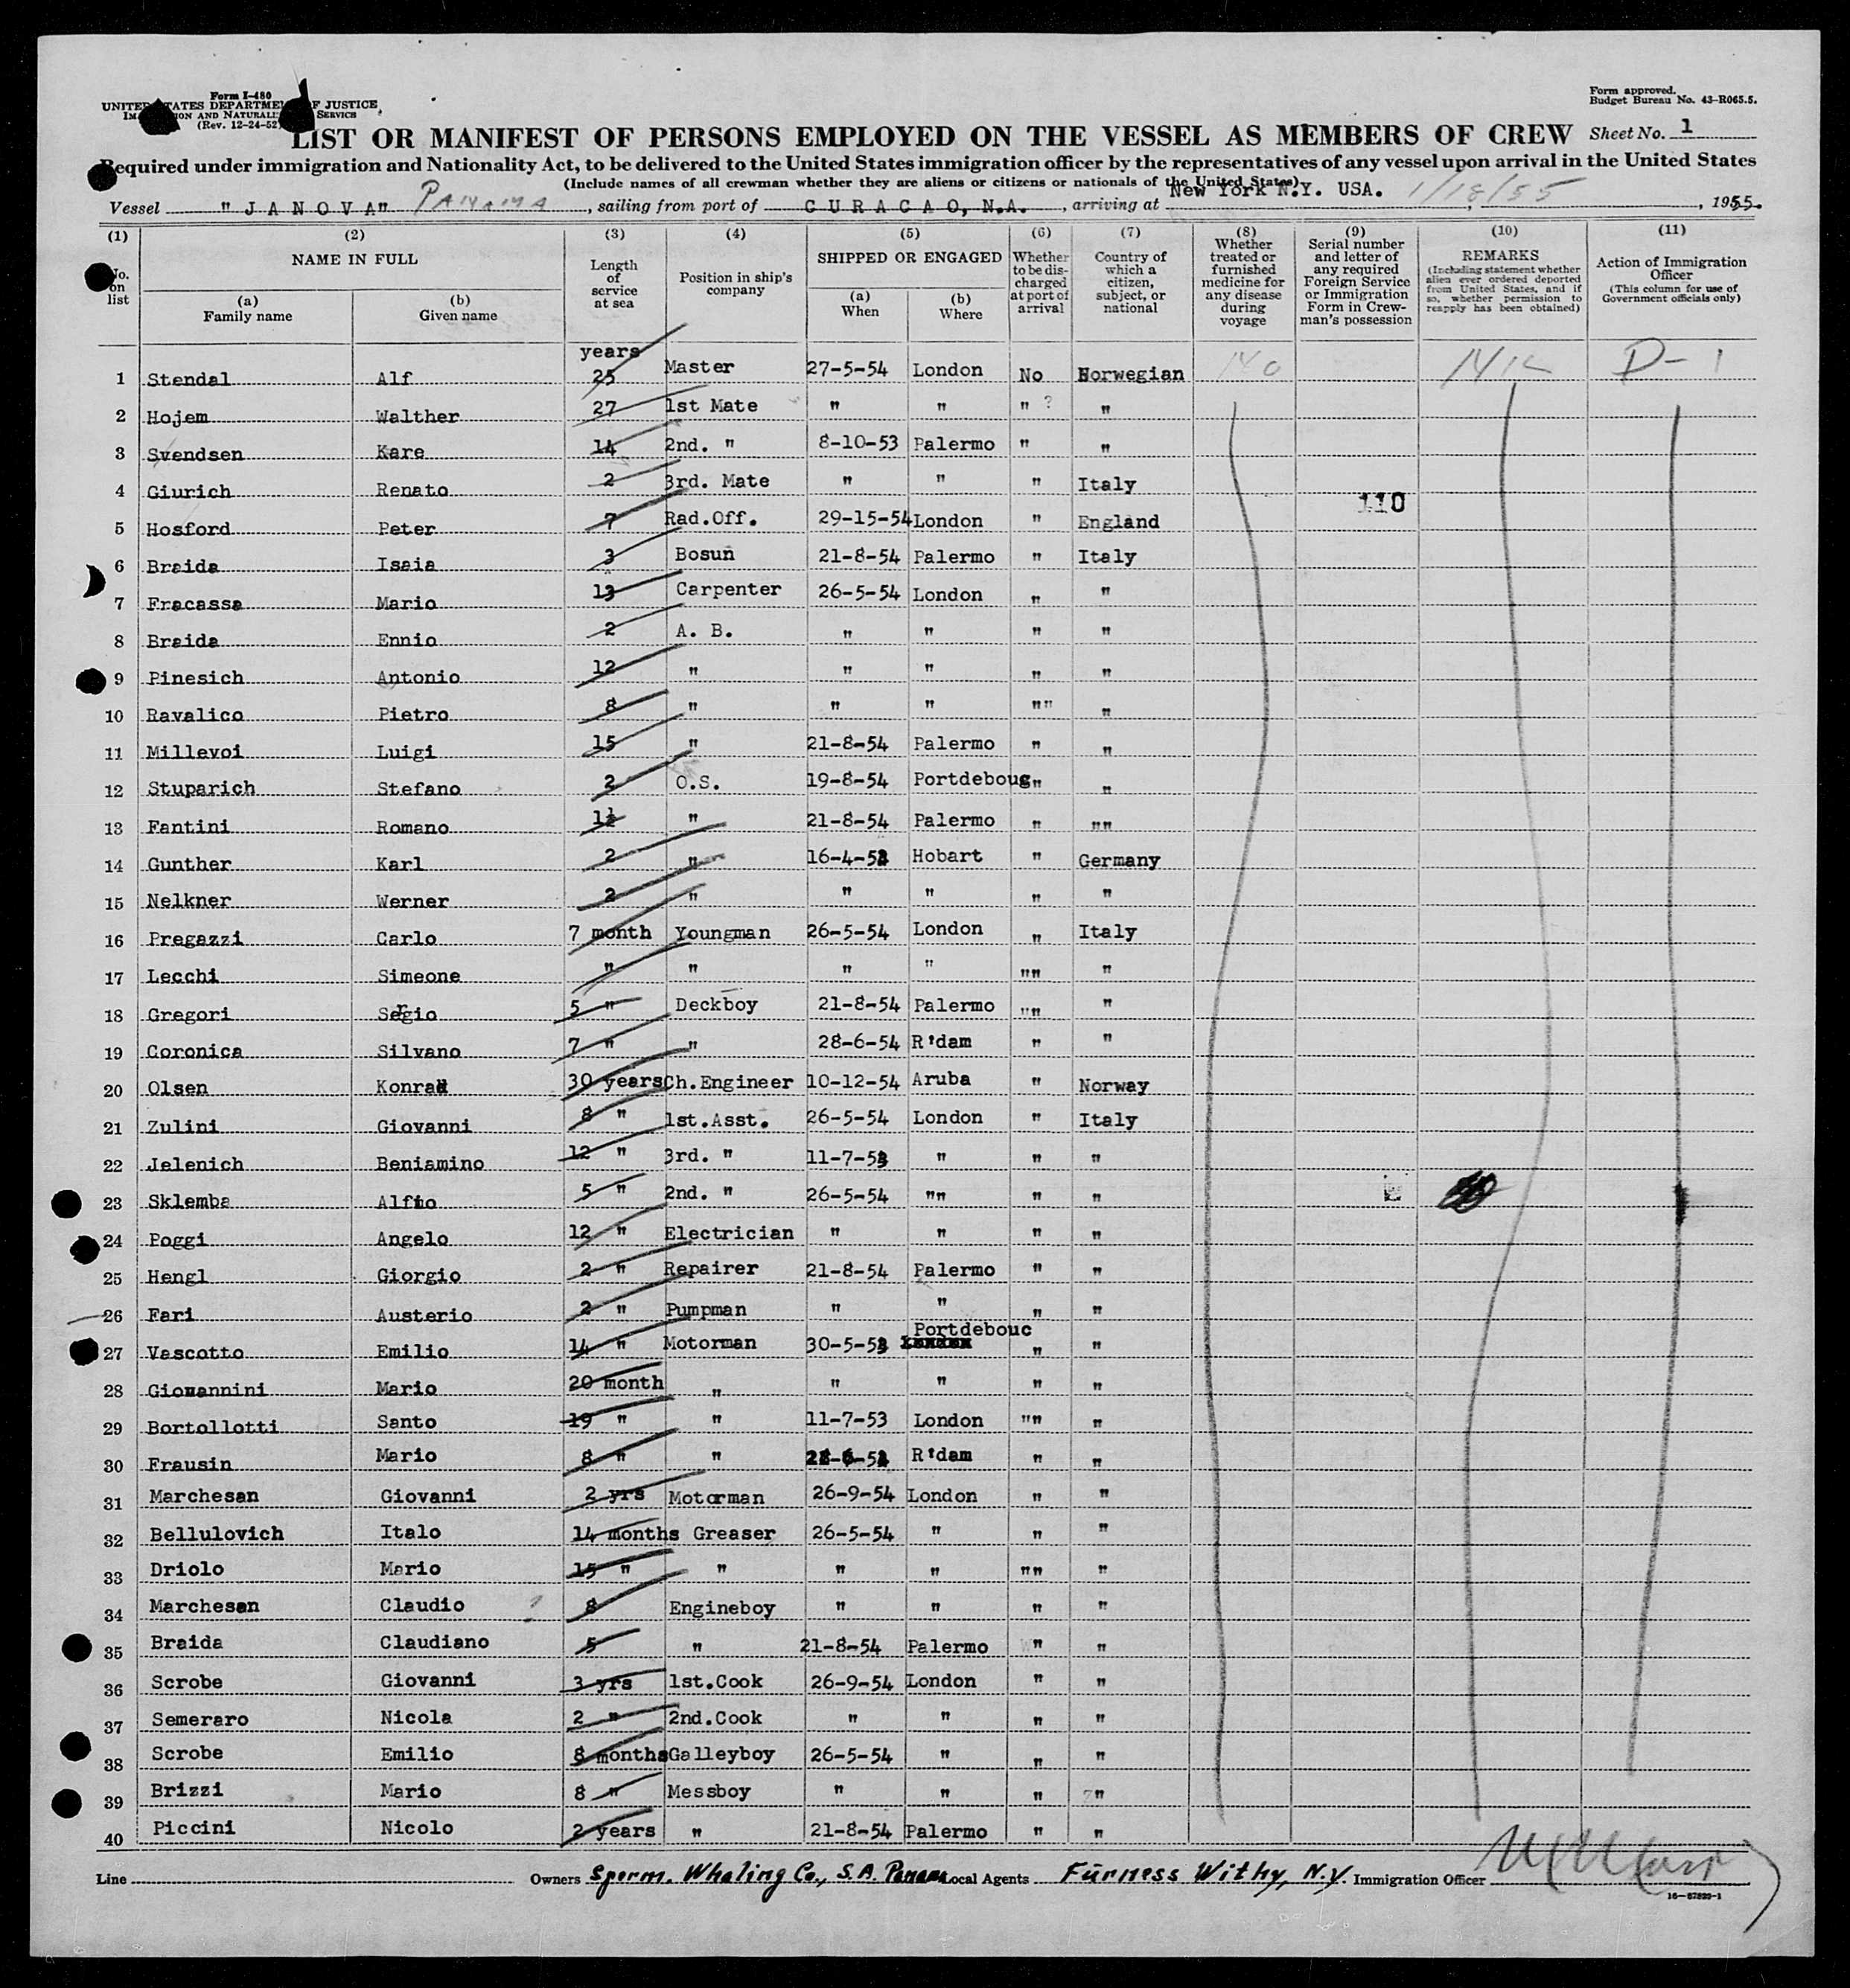 Form I-480
UNITED STATES DEPARTMENT OF JUSTICE
IMMIGRATION AND NATURALIZATION SERVICE
(Rev. 12-24-52)
Form approved.
Budget Bureau No. 43-R065.5.
LIST OR MANIFEST OF PERSONS EMPLOYED ON THE VESSEL AS MEMBERS OF CREW Sheet No. 1
Required under immigration and Nationality Act, to be delivered to the United States immigration officer by the representatives of any vessel upon arrival in the United States
(Include names of all crewman whether they are aliens or citizens or nationals of the United States)
Vessel "JANOVA" PANAMA, sailing from port of CURACAO, N.A., arriving at New York N.Y. USA. 1/18/55, 1955.
(1) No. on list
(2) NAME IN FULL (a) Family name (b) Given name
(3) Length of service at sea
(4) Position in ship's company
(5) SHIPPED OR ENGAGED (a) When (b) Where
(6) Whether to be discharged at port of arrival
(7) Country of which a citizen, subject, or national
(8) Whether treated or furnished medicine for any disease during voyage
(9) Serial number and letter of any required Foreign Service or Immigration Form in Crewman's possession
(10) REMARKS (Including statement whether alien ever ordered deported from United States, and if so, whether permission to reapply has been obtained)
(11) Action of Immigration Officer (This column for use of Government officials only)
years
1 Stendal Alf 25 Master 27-5-54 London No Norwegian D-1
2 Hojem Walther 27 1st Mate " " " ? "
3 Svendsen Kare 14 2nd. " 8-10-53 Palermo " "
4 Giurich Renato 2 3rd. Mate " " " Italy
110
5 Hosford Peter 7 Rad.Off. 29-15-54 London " England
6 Braida Isaia 3 Bosun 21-8-54 Palermo " Italy
7 Fracassa Mario 13 Carpenter 26-5-54 London " "
8 Braida Ennio 2 A. B. " " " "
9 Pinesich Antonio 12 " " " " "
10 Ravalico Pietro 8 " " " "" "
11 Millevoi Luigi 15 " 21-8-54 Palermo " "
12 Stuparich Stefano 2 O.S. 19-8-54 Portdeboug " "
13 Fantini Romano " 21-8-54 Palermo " ""
14 Gunther Karl 2 " Hobart " Germany
15 Nelkner Werner 2 " " " " "
16 Pregazzi Carlo 7 month Youngman 26-5-54 London " Italy
17 Lecchi Simeone " " " " "" "
18 Gregori Sergio 5 " Deckboy 21-8-54 Palermo "" "
19 Coronica Silvano 7 " " 28-6-54 R'dam " "
20 Olsen Konrad 30 years Ch.Engineer 10-12-54 Aruba " Norway
21 Zulini Giovanni 8 " 1st.Asst. 26-5-54 London " Italy
22 Jelenich Beniamino 12 " 3rd. " 11-7-53 " " "
23 Sklemba 5 " 2nd. " 26-5-54 "" " "
24 Poggi Angelo 12 " Electrician " " " "
25 Hengl Giorgio 2 " Repairer 21-8-54 Palermo " "
26 Fari Austerio 2 " Pumpman " " " "
27 Vascotto Emilio 14 " Motorman Portdebouc " "
28 Giovannini Mario 20 month " " " " "
29 Bortollotti Santo 19 " " 11-7-53 London "" "
30 Frausin Mario 8 " " R'dam " "
31 Marchesan Giovanni 2 yrs Motorman 26-9-54 London " "
32 Bellulovich Italo 14 months Greaser 26-5-54 " " "
33 Driolo Mario 15 " " " " "" "
34 Marchesan Claudio 8 Engineboy " " " "
35 Braida Claudiano 5 " 21-8-54 Palermo " "
36 Scrobe Giovanni 3 yrs 1st.Cook 26-9-54 London " "
37 Semeraro Nicola 2 " 2nd.Cook " " " "
38 Scrobe Emilio 8 months Galleyboy 26-5-54 " " "
39 Brizzi Mario 8 " Messboy " " " "
40 Piccini Nicolo 2 years " 21-8-54 Palermo " "
Line Owners Sperm. Whaling Co., S.A. Panama Local Agents Furness Withy, N.Y. Immigration Officer
16-67820-1